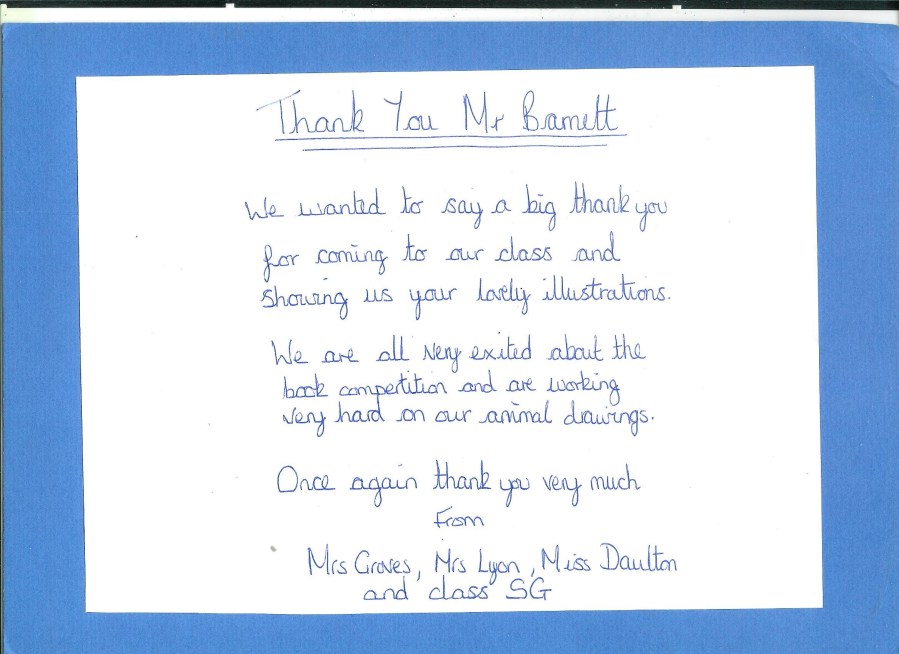 Thank You Mr Barnett
We wanted to say a big thank you
for coming to our class and
showing us your lovely illustrations.
We are all very exited about the
book competition and are working
very hard on our animal drawings.
Once again thank you very much
From
Mrs Groves, Mrs Lyon, Miss Daulton
and class SG